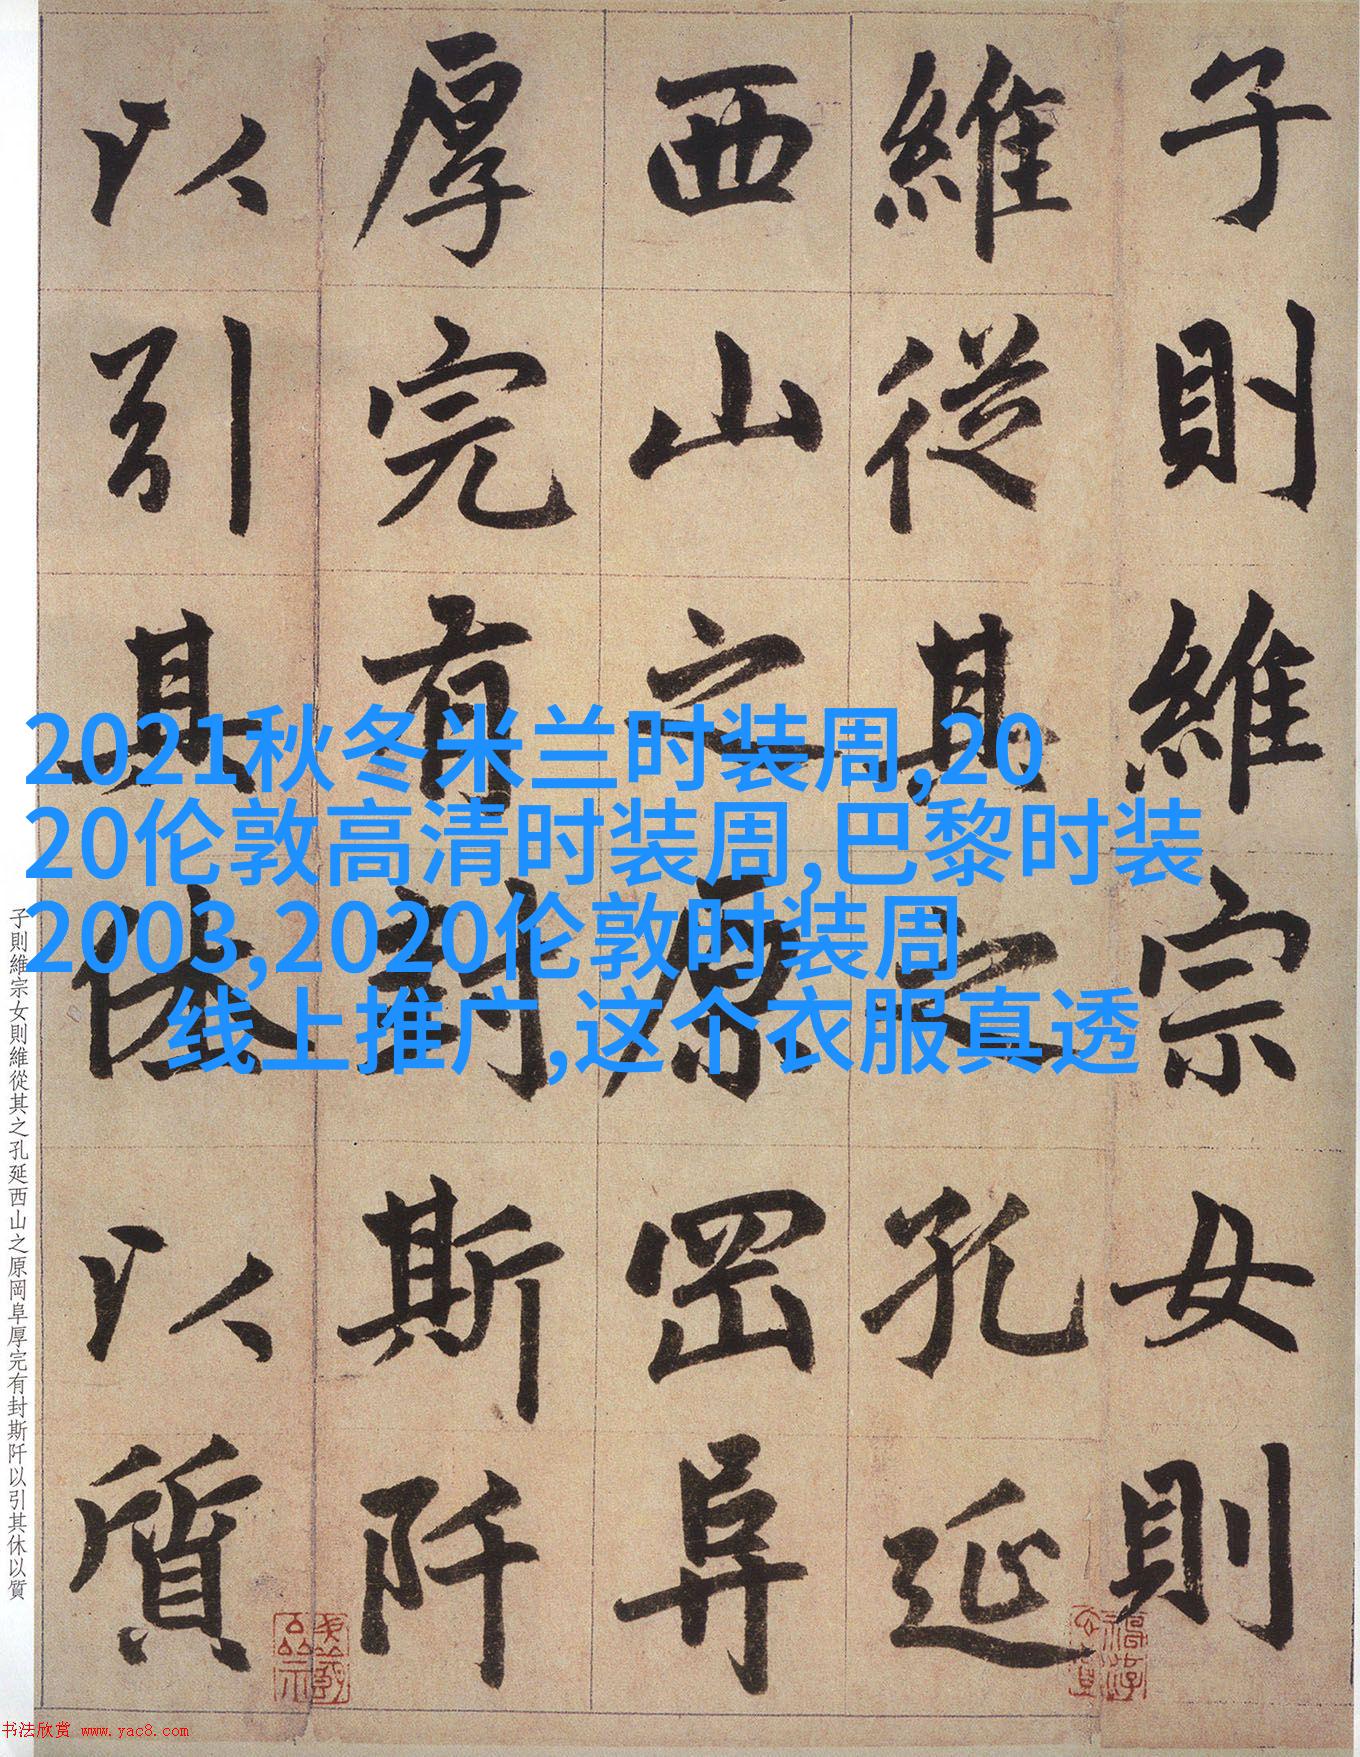 子則維宗女則
維從其之孔延
西山之原岡阜
厚完有封斯阡
以引其休以質
2021秋冬米兰时装周,20
20伦敦高清时装周,巴黎时装
2003,2020伦敦时装周
线上推广,这个衣服真透
子則維宗女則維從其之孔延西山之原岡阜厚完有封斯阡以引其休以質
书法欣赏 www.yac8.com